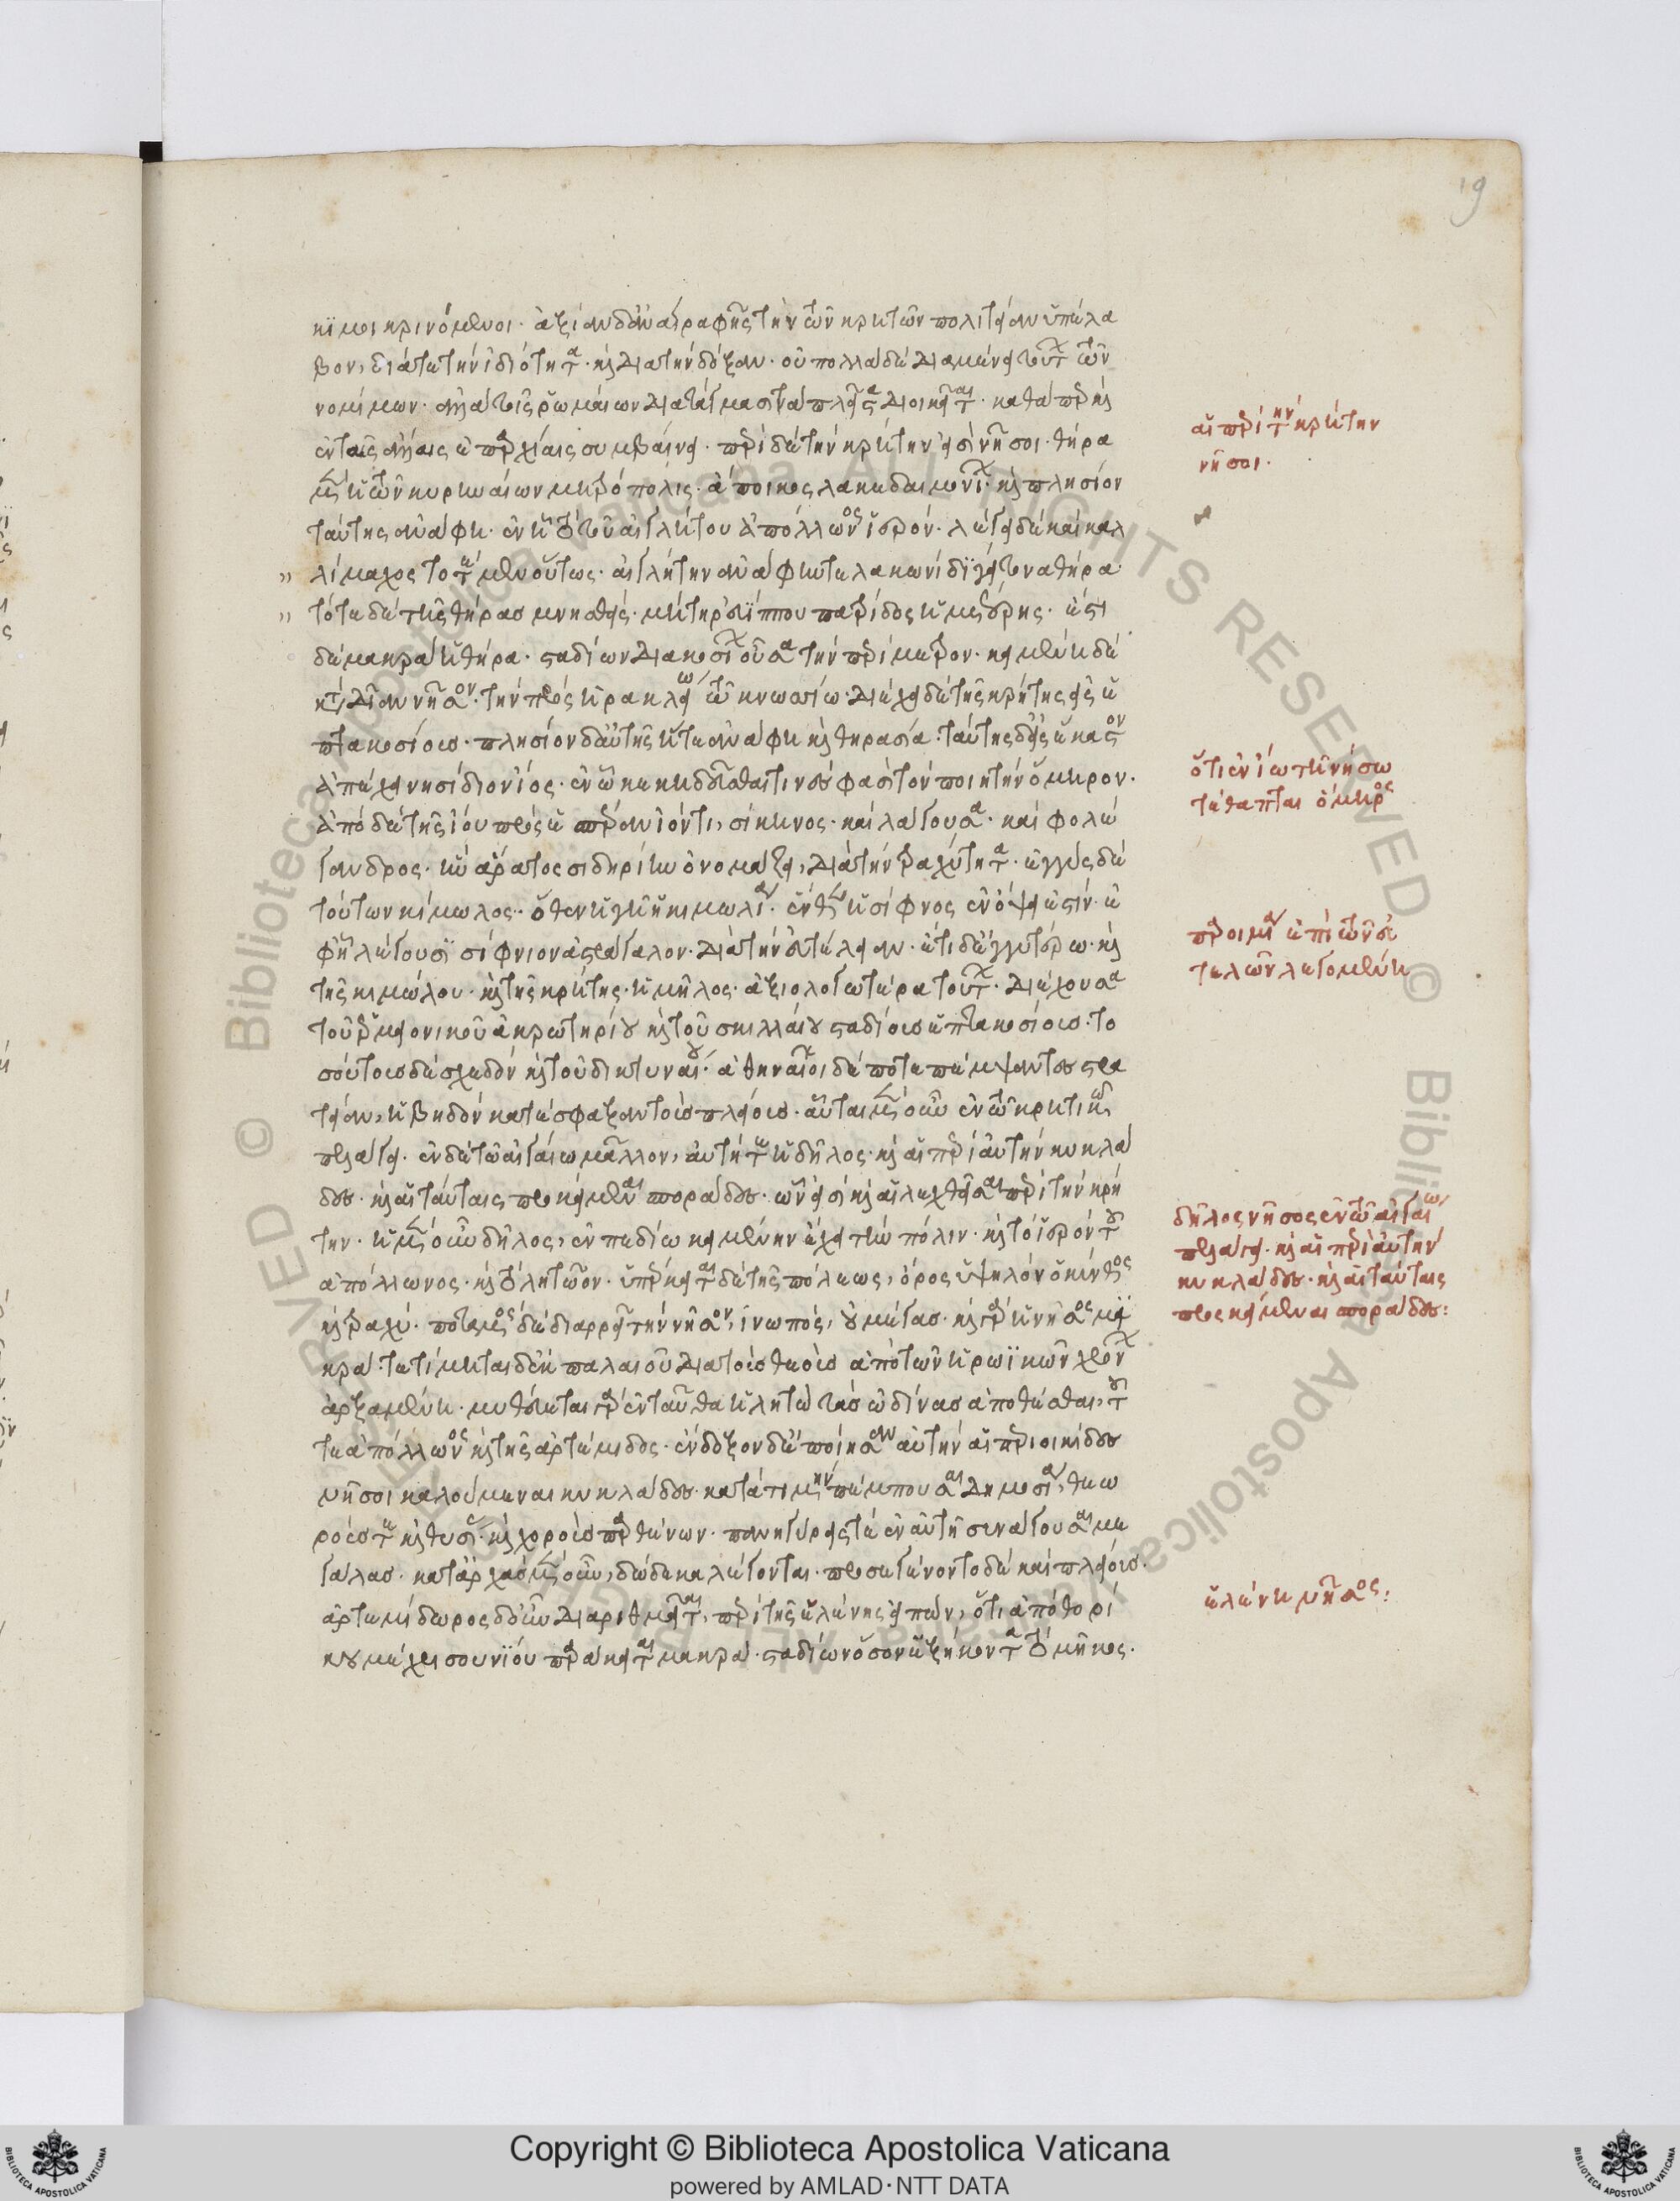 κίμοι κρινόμενοι· ἀξίαν δ' ἀναγραφῆς τὴν τῶν κρητῶν πολιτείαν ὑπέλα
βον, διά τε τὴν ἰδιότητα· καὶ διὰ τὴν δόξαν· οὐ πολλὰ δὲ διαμένει τούτων τῶν
νομίμων· ἀλλὰ τοῖς ῥωμαίων διατάγμασι τὰ πλεῖστα διοικεῖται· καθάπερ καὶ
ἐν ταῖς ἄλλαις ἐπαρχίαις συμβαίνει· περὶ δὲ τὴν κρήτην εἰσὶ νῆσοι· θήρα
μὲν ἡ τῶν κυρηναίων μητρόπολις· ἄποικος λακεδαιμονίων· καὶ πλησίον
ταύτης ἀνάφη· ἐν ᾗ τὸ τοῦ αἰγλήτου ἀπόλλωνος ἱερόν· λέγει δὲ καὶ καλ
λίμαχος τοτὲ μὲν οὕτως· αἰγλήτην ἀνάφην τε λακωνίδι γείτονα θήρα·
τότε δὲ τῆς θήρας μνησθείς· μήτηρ εὐίππου πατρίδος ἡμετέρης· ἔστι
δὲ μακρὰ ἡ θήρα· σταδίων διακοσίων οὖσα τὴν περίμετρον· κειμένη δὲ
κατὰ δίαν νῆσον· τὴν πρὸς ἡρακλείω τῶ κνωσίω· διέχει δὲ τῆς κρήτης εἰς ἑ
πτακοσίους· πλησίον δ' αὐτῆς ἥ τε ἀνάφη καὶ θηρασία· ταύτης δ' εἰς ἑκατὸν
ἀπέχει νησίδιον ἴος· ἐν ᾧ κεκηδεῦσθαι τινές φασὶ τὸν ποιητὴν ὅμηρον·
ἀπὸ δὲ τῆς ἴου πρὸς ἑσπέραν ἰόντι, σίκηνος· καὶ λάγουσα· καὶ φολέ
γανδρος· ἣν ἄρατος σιδηρείην ὀνομάζει, διὰ τὴν τραχύτητα· ἐγγὺς δὲ
τούτων κίμωλος· ὅθεν ἡ γῆ ἡ κιμωλία· ἔνθεν ἡ σίφνος ἐν ὄψει ἐστίν· ἐ
φ' ᾗ λέγουσι σίφνιον ἀστράγαλον· διὰ τὴν εὐτέλειαν· ἔτι δ' ἐγγυτέρω· καὶ
τῆς κιμώλου· καὶ τῆς κρήτης· ἡ μῆλος· ἀξιολογωτέρα τούτων· διέχουσα
τοῦ ἑρμιονικοῦ ἀκρωτηρίου καὶ τοῦ σκιλλαίου σταδίους ἑπτακοσίους· το
σούτους δὲ σχεδὸν καὶ τοῦ δικτυνναίου· ἀθηναῖοι δέ ποτε πέμψαντες στρα
τείαν, ἡβηδὸν κατέσφαξαν τοὺς πλείους· αὗται μὲν οὖν ἐν τῶ κρητικῶ
πελάγει· ἐν δὲ τῶ αἰγαίω μᾶλλον, αὐτή τε ἡ δῆλος· καὶ αἱ περὶ αὐτὴν κυκλά
δες· καὶ αἱ ταύταις προσκείμεναι σποράδες· ὧν εἰσὶ καὶ αἱ λεχθεῖσαι περὶ τὴν κρή
την· ἡ μὲν οὖν δῆλος, ἐν πεδίω κειμένην ἔχει τὴν πόλιν· καὶ τὸ ἱερὸν τοῦ
ἀπόλλωνος· καὶ τὸ λητῶον· ὑπέρκειται δὲ τῆς πόλεως, ὄρος ὑψηλὸν ὁ κύνθος
καὶ τραχύ· ποταμὸς δὲ διαρρεῖ τὴν νῆσον, ἰνωπός, οὐ μέγας· καὶ γὰρ ἡ νῆσος μι
κρά· τετίμηται δὲ ἐκ παλαιοῦ διὰ τοὺς θεοὺς ἀπὸ τῶν ἡρωϊκῶν χρόνων
ἀρξαμένη· μυθεύεται γὰρ ἐνταῦθα ἡ λητὼ τὰς ὠδῖνας ἀποθέσθαι, τοῦ
τε ἀπόλλωνος καὶ τῆς ἀρτέμιδος· ἔνδοξον δ' ἐποίησαν αὐτὴν αἱ περιοικίδες
νῆσοι καλούμεναι κυκλάδες· κατὰ τιμὴν πέμπουσαι δημοσία, θεω
ρούς τε καὶ θυσίας· καὶ χοροὺς παρθένων· πανηγύρεις τε ἐν αὐτῆ συνάγουσαι με
γάλας· κατ' ἀρχὰς μὲν οὖν, δώδεκα λέγονται· προσεγένοντο δὲ καὶ πλείους·
ἀρτεμίδωρος δ' οὖν διαριθμεῖται, περὶ τῆς ἑλένης εἰπών, ὅτι ἀπὸ θορί
κου μέχρι σουνίου παράκειται μακρά· σταδίων ὅσον ἑξήκοντα τὸ μῆκος·
19
αἱ περὶ τὴν κρήτην
νῆσοι·
ὅτι ἐν ἴω τῆ νήσω
τέθαπται ὁ ὅμηρος
παροιμία ἐπὶ τῶν εὐ
τελῶν λεγομένη
δῆλος νῆσος ἐν τῶ αἰγαίω
πελάγει· καὶ αἱ περὶ αὐτὴν
κυκλάδες· καὶ αἱ ταύταις
προσκείμεναι σποράδες:
ἑλένη νῆσος:
Copyright © Biblioteca Apostolica Vaticana
powered by AMLAD·NTT DATA